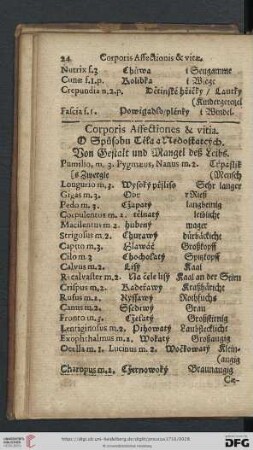 24 Corporis Affectionis & vitæ.
Nutrix f.3 Chůwa i Seugamme
Cunæ f.1.p. Kolíbka i Wiege
Crepundia n.2.p. Dětinské hřičky / Lautky
(Kindergrenzel
Fascia f.1. Powigadlo/plénky i Windel.
Corporis Affectiones & vitia.
O Spůsobu Těla a Nedostatcých.
Von Gestalt und Mangel deß Leibs.
Pumilio, m. 3. Pygmæus, Nanus m.2. Trpaslik
s Zwergle (Mensch
Longurio m.3. Wysoký pijleso Sehr langer
Gigas m.3. Obr r Rieß
Pedo m.3. Czapatý langbeinig
Corpulentus m.2. tělnatý leibicht
Macilentus m.2. hubený mager
Strigosus m.2. Churawý dürbäckicht
Capito m.3. Hlawáč Großkopff
Cilo m 3 Chocholatý Spitzkopf
Calvus m.2. Lysý Kaal
Recalvaster m.2. Na čele lysý Kaal an der Stirn
Crispus m.2. Kadeřawý Kraußhäricht
Rufus m.2. Ryssawý Rothfuchs
Canus m.2. Ssediwý Grau
Fronto m.3. Cželatý Großstirnig
Lentiginosus m.2. Pihowatý Laubfleckicht
Exophthalmus m.2. Wokatý Großaugig
Ocella m.1. Lucinus m.2. Wočkowatý Klein-
(augig
Charopus m.2. Czernowoký Braunaugig
Cæ-
http://digi.ub.uni-heidelberg.de/diglit/
UNIVERSITÄTS-BIBLIOTHEK HEIDELBERG
Gefördert durch die DFG